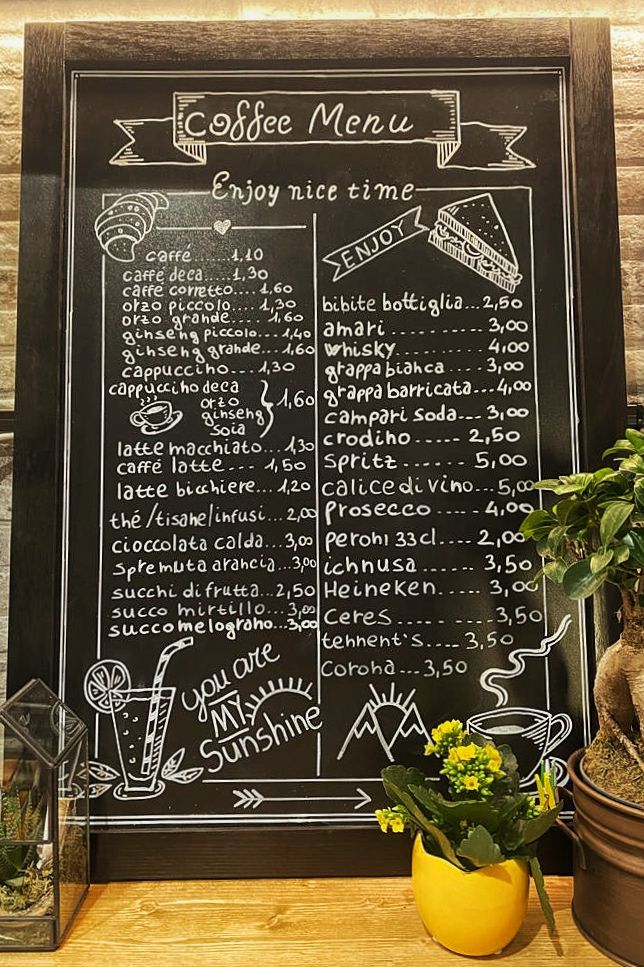 Coffee Menu
Enjoy nice time
caffé......1,10
caffé deca....1,30
caffé corretto....1,60
orzo piccolo....1,30
orzo grande....1,60
ginseng piccolo...1,40
ginseng grande...1,60
cappuccino...1,30
cappuccino deca
orzo
ginseng
soia
1,60
latte macchiato..1,30
caffé latte---1,50
latte bicchiere...1,20
thé/tisane/infusi...2,00
cioccolata calda...3,00
spremuta arancia...3,00
succhi di frutta..2,50
succo mirtillo...3,00
succo melograno...3,00
you are
MY
Sunshine
ENJOY
bibite bottiglia...2,50
amari..........3,00
whisky..........4,00
grappa bianca....3,00
grappa barricata...4,00
campari soda---3,00
crodino-----2,50
spritz------5,00
calice di vino...5,00
prosecco-----4,00
peroni 33cl....2,00
ichnusa......3,50
Heineken.....3,00
Ceres..........3,50
tennent's....3,50
corona...3,50